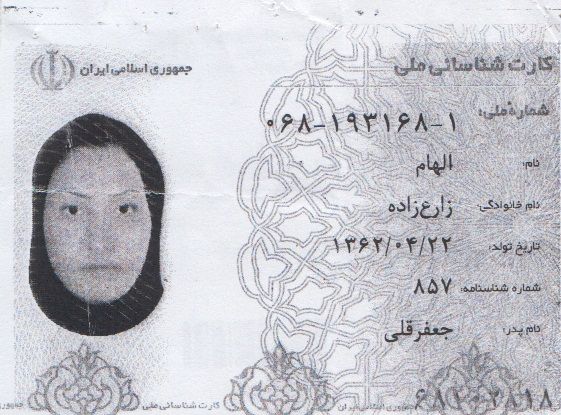 کارت شناسائی ملی
جمهوری اسلامی ایران
شمارهٔ ملی: ۰۶۸-۱۹۳۱۶۸-۱
نام: الهام
نام خانوادگی: زارع‌زاده
تاریخ تولد: ۱۳۶۲/۰۴/۲۲
شماره شناسنامه: ۸۵۷
نام پدر: جعفرقلی
کارت شناسائی ملی
جمهوری اسلامی ایران